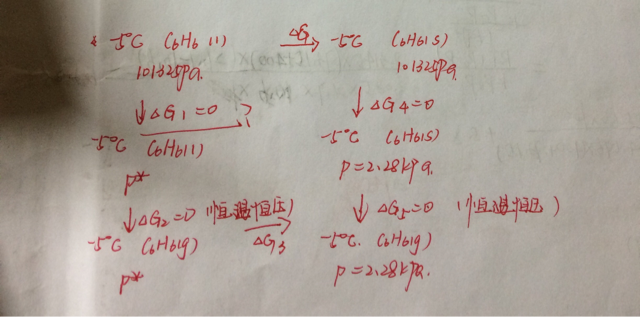 * -5℃ C6H6(l) ΔG → -5℃ C6H6(s)
101325pa. 101325pa.
↓ΔG1=0 ? ↓ΔG4=0
-5℃ C6H6(l) -5℃ C6H6(s)
p* p=2.28kpa.
↓ΔG2=0 (恒温恒压) ↓ΔG5=0 (恒温恒压)
-5℃ C6H6(g) → ΔG3 -5℃. C6H6(g)
p* p=2.28kpa.